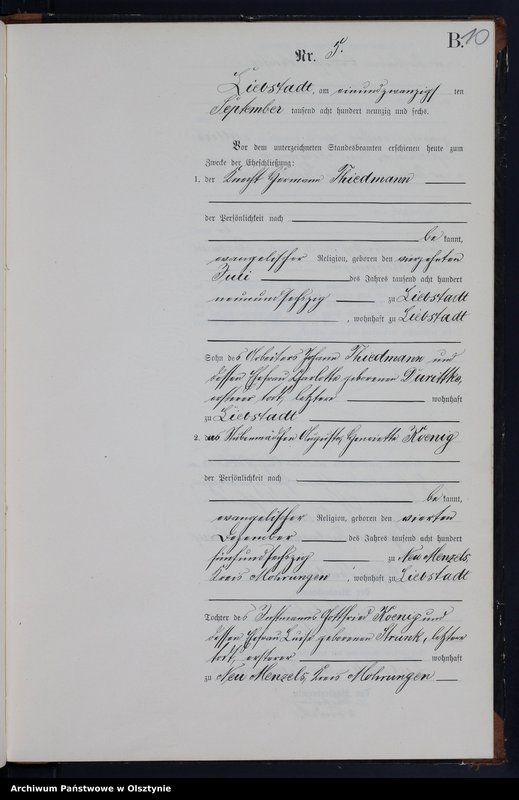 B. 10
Nr. 5.
Liebstadt, am einundzwanzigsten
September tausend acht hundert neunzig und sechs.
Vor dem unterzeichneten Standesbeamten erschienen heute zum
Zwecke der Eheschließung:
1. der Knecht Hermann Thiedmann
der Persönlichkeit nach
be kannt,
evangelischer Religion, geboren den vierzehnten
Juli des Jahres tausend acht hundert
neunundsechszig zu Liebstadt
, wohnhaft zu Liebstadt
Sohn des Arbeiters Johann Thiedmann und
dessen Ehefrau Charlotte geborenen Darittko,
ersterer todt, letztere wohnhaft
zu Liebstadt
2. das Stubenmädchen Auguste, Henriette Koenig
der Persönlichkeit nach
be kannt,
evangelischer Religion, geboren den vierten
Dezember des Jahres tausend acht hundert
fünfundsechszig zu Neu Menzels,
Kreis Mohrungen, wohnhaft zu Liebstadt
Tochter des Instmanns Gottfried Koenig und
dessen Ehefrau Luise geborenen Strunk, letztere
todt, ersterer wohnhaft
zu Neu Menzels, Kreis Mohrungen
Archiwum Państwowe w Olsztynie